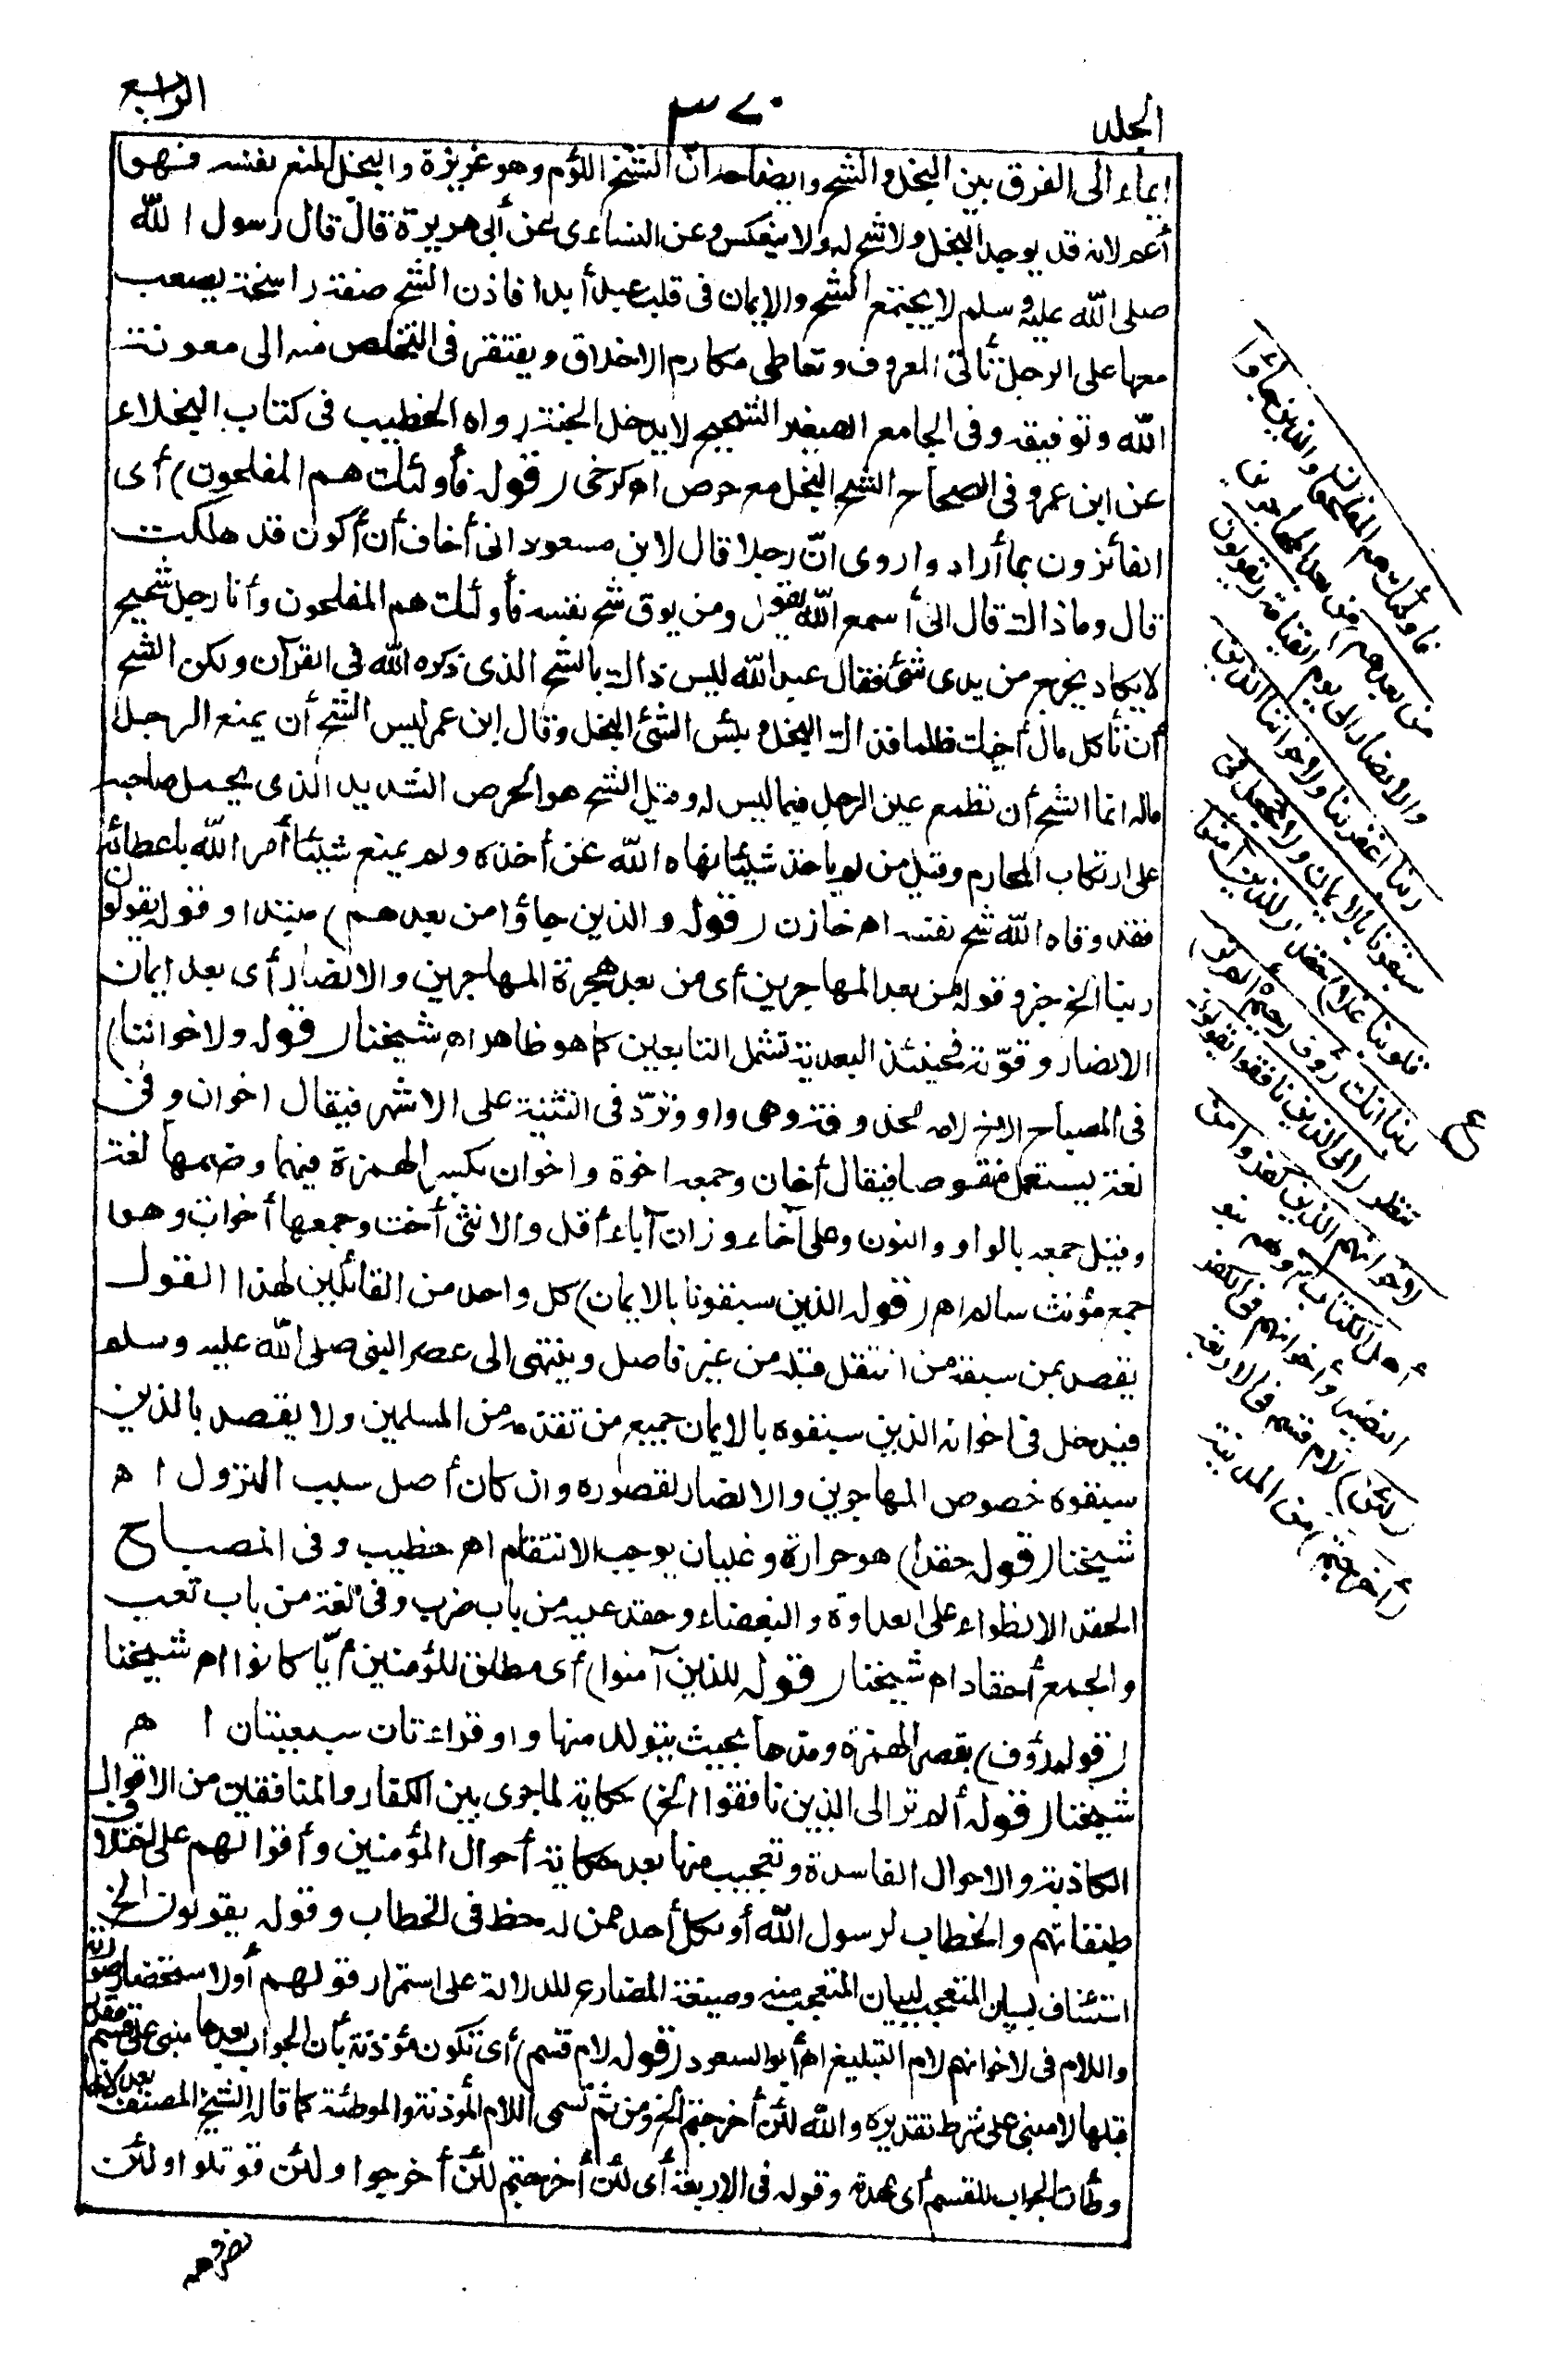 الجلد
٣٧٠
الرابع
إيماء إلى الفرق بين البخل والشح وايضاحه انّ الشح اللؤم وهو غريزة والبخل المنع نفسه فهو
أعم لانه قد يوجد البخل ولا شح له ولا ينعكس وعن النساءى عن أبى هريرة قال قال رسول الله
صلى الله عليه وسلم لا يجتمع الشح والايمان فى قلب عبد أبدا فاذن الشح صفة راسخة يصعب
معها على الرجل تأتى المعروف وتعاطى مكارم الاخلاق ويفتقر فى التخلص منه الى معونة
الله وتوفيقه وفى الجامع الصغير الشحيح لا يدخل الجنة رواه الخطيب فى كتاب البخلاء
عن ابن عمر وفى الصحاح الشح البخل مع حرص اه كرخى (قوله فأولئك هم المفلحون) أى
الفائزون بما أرادوا روى انّ رجلا قال لابن مسعود انى أخاف أن أكون قد هلكت
قال وما ذاك قال انى أسمع الله يقول ومن يوق شح نفسه فأولئك هم المفلحون وأنا رجل شحيح
لا يكاد يخرج من يدى شئ فقال عبد الله ليس ذاك بالشح الذى ذكره الله فى القرآن ولكن الشح
أن تأكل مال أخيك ظلما فذاك البخل وبئس الشئ البخل وقال ابن عمر ليس الشح أن يمنع الرجل
ماله انما الشح أن تطمع عين الرجل فيما ليس له وقيل الشح هو الحرص الشديد الذى يحمل صاحبه
على ارتكاب المحارم وقيل من لم ياخذ شيئا نهاه الله عن أخذه ولم يمنع شيئا أمر الله باعطائه
فقد وقاه الله شح نفسه اه خازن (قوله والذين جاؤا من بعدهم) مبتدا وقوله يقولون
ربنا الخ خبر وقوله من بعد المهاجرين أى من بعد هجرة المهاجرين والانصار أى بعد ايمان
الانصار وقوّته فحينئذ البعدية تشمل التابعين كما هو ظاهر اه شيخنا (قوله ولاخواننا)
فى المصباح الاخ لامه محذوفة وهى واو وتردّ فى التثنية على الاشهر فيقال اخوان وفى
لغة يستعمل منقوصا فيقال أخان وجمعه اخوة واخوان بكسر الهمزة فيهما وضمها لغة
وقيل جمعه بالواو والنون وعلى آخاء وزان آباء أقل والانثى أخت وجمعها أخوات وهو
جمع مؤنث سالم اه (قوله الذين سبقونا بالايمان) كل واحد من القائلين لهذا القول
يقصد بمن سبقه من انتقل قبله من غير فاصل وينتهى الى عصر النبى صلى الله عليه وسلم
فيدخل فى اخوانه الذين سبقوه بالايمان جميع من تقدّمه من المسلمين ولا يقصد بالذين
سبقوه خصوص المهاجرين والانصار لقصوره وان كان أصل سبب النزول اه
شيخنا (قوله حقدا) هو حرارة وغليان يوجب الانتقام اه خطيب وفى المصباح
الحقد الانطواء على العداوة والبغضاء وحقد عليه من باب ضرب وفى لغة من باب تعب
والجمع أحقاد اه شيخنا (قوله للذين آمنوا) أى مطلق للمؤمنين أيّا كانوا اه شيخنا
(قوله رؤف) بقصر الهمزة ومدها بحيث يتولد منها واو قراءتان سبعيتان اه
شيخنا (قوله ألم تر الى الذين نافقوا الخ) حكاية لما جرى بين الكفار والمنافقين من الاقوال
الكاذبة والاحوال الفاسدة وتعجيب منها بعد حكاية أحوال المؤمنين وأقوالهم على اختلاف
طبقاتهم والخطاب لرسول الله أو لكل أحد ممن له حظ فى الخطاب وقوله يقولون الخ
استئناف لبيان المتعجب منه وصيغة المضارع للدلالة على استمرار قولهم أو لاستحضار صورته
واللام فى لاخوانهم لام التبليغ اه أبو السعود (قوله لام قسم) أى تكون مؤذنة بأن الجواب بعدها مبنى على قسم مقدر
قبلها لا مبنى على شرط تقديره والله لئن أخرجتم الخ ومن ثم تسمى اللام المؤذنة والموطئة كما قاله الشيخ المصنف بعد لانها
وطأت الجواب للقسم أى مهدته وقوله فى الاربعة أى لئن أخرجتم لئن أخرجوا ولئن قوتلوا ولئن
نصروهم
فأولئك هم المفلحون والذين جاؤا
من بعدهم) من بعد المهاجرين
والانصار الى يوم القيامة (يقولون
ربنا اغفر لنا ولاخواننا الذين
سبقونا بالايمان ولا تجعل فى
قلوبنا غلا) حقدا (للذين آمنوا
ربنا انك رؤف رحيم ألم تر)
تنظر (الى الذين نافقوا يقولون
لاخوانهم الذين كفروا من
أهل الكتاب) وهم بنو
النضير وأخوانهم فى الكفر
(لئن) لام قسم فى الاربعة
(أخرجتم) من المدينة
ع